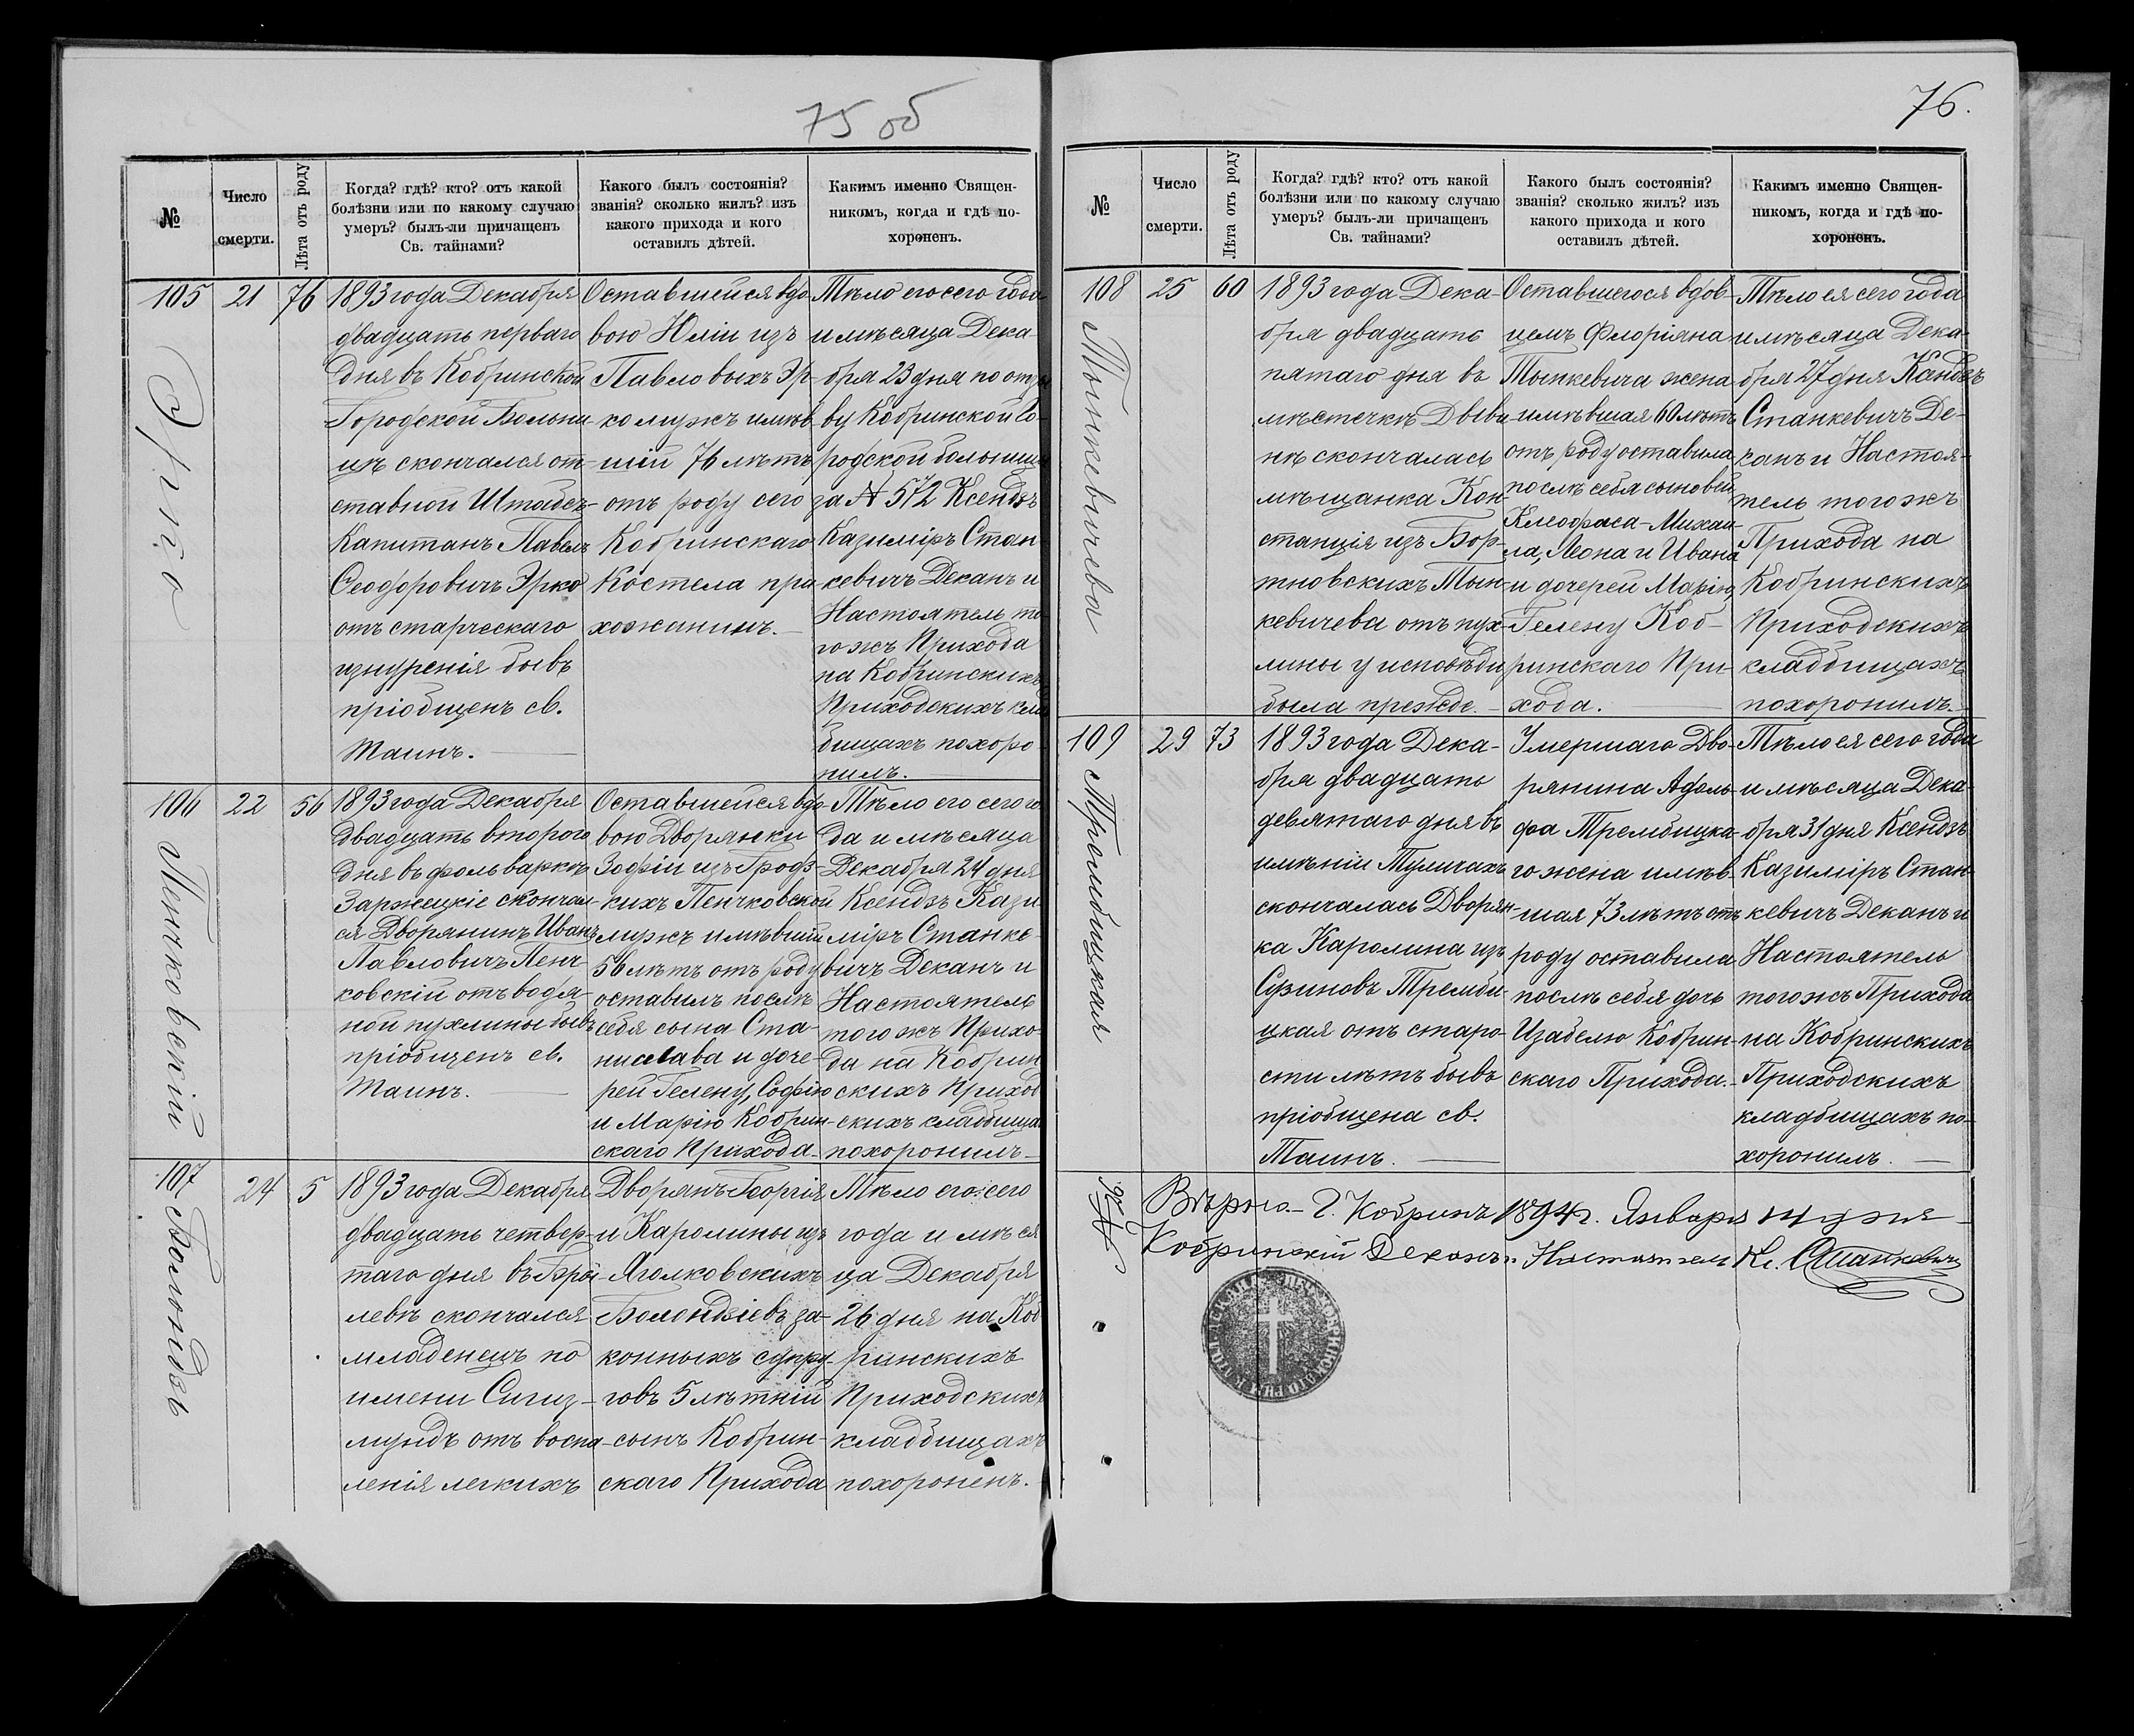 75 об
№
Число
смерти.
Лѣта отъ роду
Когда? гдѣ? кто? отъ какой
болѣзни или по какому случаю
умеръ? былъ-ли причащенъ
Св. тайнами?
Какого былъ состоянія?
званія? сколько жилъ? изъ
какого прихода и кого
оставилъ дѣтей.
Какимъ именно Священ-
никомъ, когда и гдѣ по-
хороненъ.
105
Эрко
21
76
1893 года Декабря
двадцать перваго
дня въ Кобринской
Городской Больни-
цѣ скончался от-
ставной Штабсъ-
Капитанъ Павелъ
Ѳеодоровичъ Эрко
отъ старческаго
изнуренія бывъ
пріобщенъ св.
Таинъ.
Оставшейся вдо
вою Юліи изъ
Павловыхъ Эр-
ко мужъ имѣв-
шій 76 лѣтъ
отъ роду сего
Кобринскаго
Костела при
хожанинъ.
Тѣло его сего года
и мѣсяца Дека
бря 23 дня по отзы
ву Кобринской Го-
родской больницы
за № 572 Ксендзъ
Казиміръ Стан
кевичъ Деканъ и
Настоятель то
го жъ Прихода
на Кобринскихъ
Приходскихъ клад
бищахъ похоро
нилъ.
106
Пенчковскій
22
56
1893 года Декабря
двадцать второго
дня въ фольваркѣ
Заржецкіе скончал-
ся Дворянинъ Иванъ
Павловичъ Пенч-
ковскій отъ водя-
ной пухлины бывъ
пріобщенъ св.
Таинъ.
Оставшейся вдо
вою Дворянки
Зофіи изъ Грод-
кихъ Пенчковской
мужъ имѣвшій
56 лѣтъ отъ роду
оставилъ послѣ
себя сына Ста-
нислава и доче-
рей Гелену, Софію
и Марію Кобрин-
скаго Прихода
Тѣло его сего го
да и мѣсяца
Декабря 24 дня
Ксендзъ Кази
міръ Станке-
вичъ Деканъ и
Настоятель
того жъ Прихо
да на Кобрин
скихъ Приход
скихъ кладбища
похоронилъ
107
24
5
1893 года Декабря
двадцать четвер-
таго дня въ
левѣ скончался
младенецъ по
имени Сигиз-
мундъ отъ воспа-
ленія легкихъ
Дворянъ Георгія
и Каролины изъ
Яголковскихъ
за-
конныхъ супру-
говъ 5 лѣтній
сынъ Кобрин-
скаго Прихода
Тѣло его сего
года и мѣся
ца Декабря
26 дня на Коб
ринскихъ
Приходскихъ
кладбищахъ
похороненъ.
76.
№
Число
смерти.
Лѣта отъ роду
Когда? гдѣ? кто? отъ какой
болѣзни или по какому случаю
умеръ? былъ-ли причащенъ
Св. тайнами?
Какого былъ состоянія?
званія? сколько жилъ? изъ
какого прихода и кого
оставилъ дѣтей.
Какимъ именно Священ-
никомъ, когда и гдѣ по-
хороненъ.
108
Тынкевичева
25
60
1893 года Дека-
бря двадцать
пятаго дня въ
мѣстечкѣ Дыви
нѣ скончалась
мѣщанка Кон-
станція изъ Бор-
тновскихъ Тын-
кевичева отъ пух-
лины у исповѣди
была прежде.
Оставшегося вдов-
цемъ Флоріяна
Тынкевича жена
имѣвшая 60 лѣтъ
отъ роду оставила
послѣ себя сыновей
Клеофаса-Михаи-
ла, Леона и Ивана
и дочерей Марію,
Гелену Коб-
ринскаго При-
хода.
Тѣло ея сего года
и мѣсяца Дека-
бря 27 дня Ксендзъ
Станкевичъ Де-
канъ и Настоя-
тель того жъ
Прихода на
Кобринскихъ
Приходскихъ
кладбищахъ
похоронилъ.
109
Трембицкая
29
73
1893 года Дека-
бря двадцать
девятаго дня въ
имѣніи Туличахъ
скончалась Дворян-
ка Каролина изъ
Сузиновъ Тремби-
цкая отъ старо-
сти лѣтъ бывъ
пріобщена св.
Таинъ.
Умершаго Дво-
рянина Адоль-
фа Трембицка-
го жена имѣв-
шая 73 лѣтъ отъ
роду оставила
послѣ себя дочь
Изабелю Кобрин-
скаго Прихода.
Тѣло ея сего года
и мѣсяца Дека-
бря 31 дня Ксендзъ
Казиміръ Стан-
кевичъ Деканъ и
Настоятель
того жъ Прихода
на Кобринскихъ
Приходскихъ
кладбищахъ по-
хоронилъ.
Вѣрно. Г. Кобринъ 1894 г. Января 14 дня
Кобринскій Деканъ и Настоятель Кс. Станкевичъ